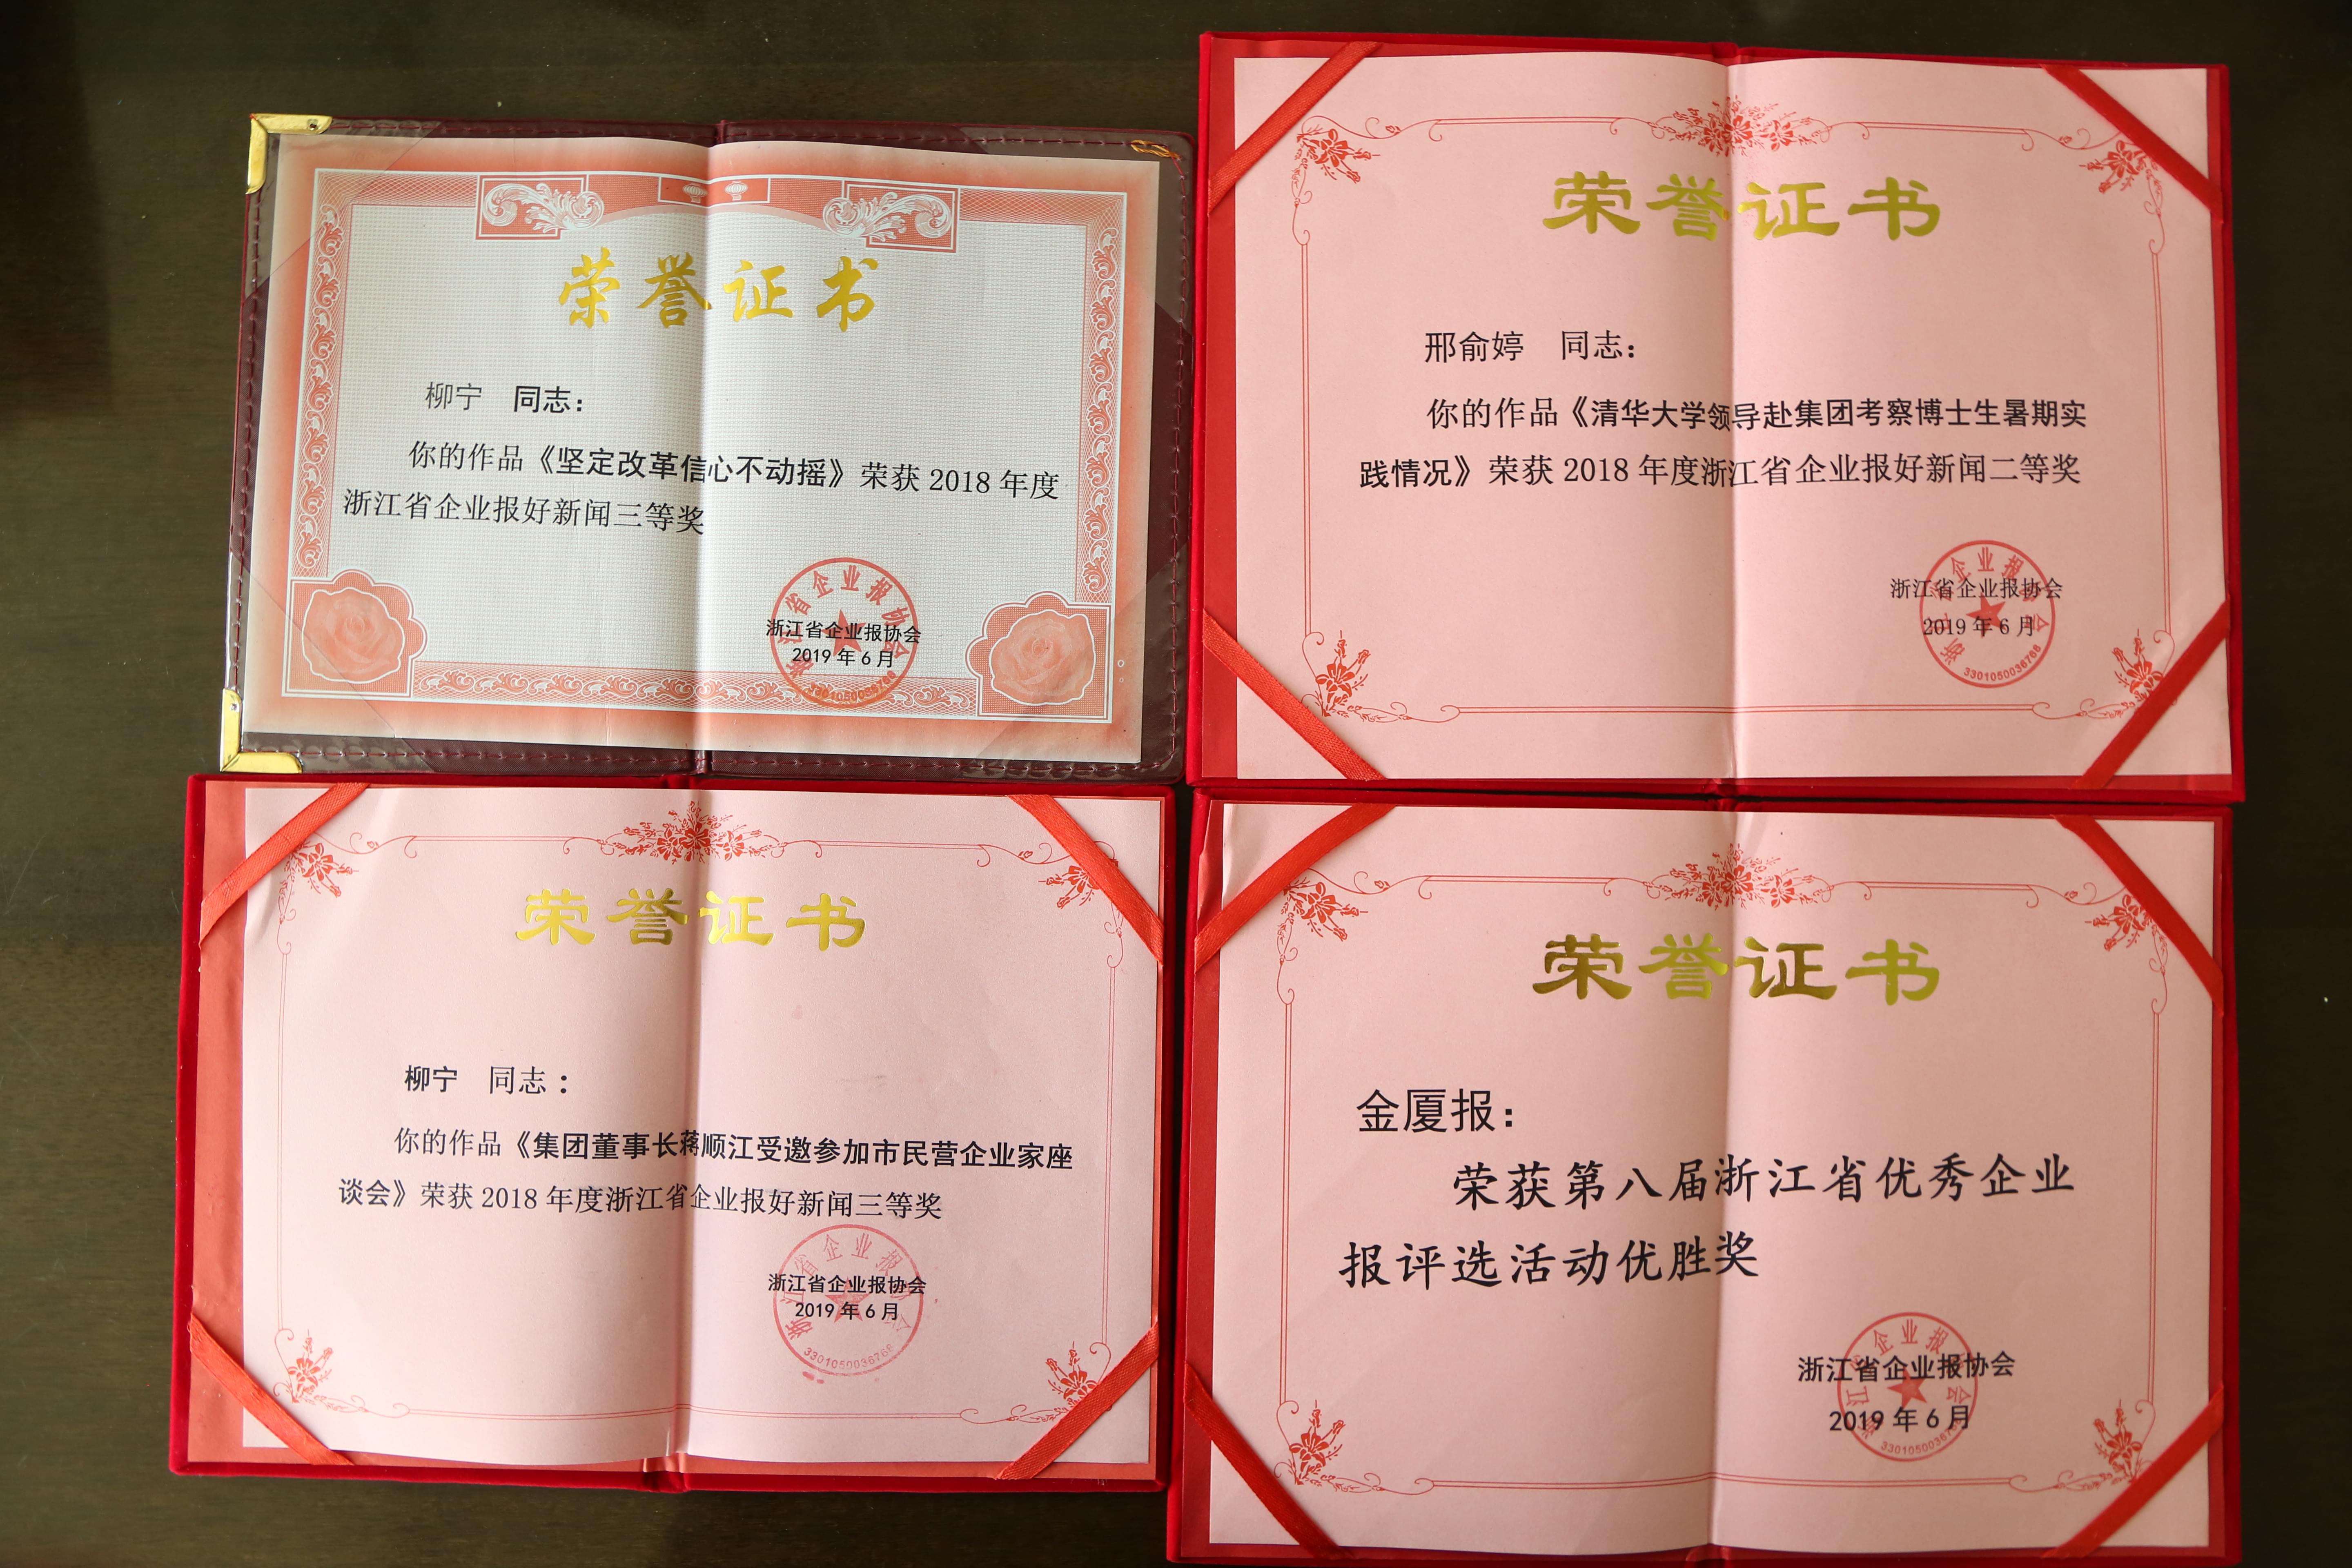 荣誉证书
柳宁 同志：
你的作品《坚定改革信心不动摇》荣获 2018 年度
浙江省企业报好新闻三等奖
浙江省企业报协会
2019 年 6 月
浙江省企业报协会
3301050036766
荣誉证书
邢俞婷 同志：
你的作品《清华大学领导赴集团考察博士生暑期实
践情况》荣获 2018 年度浙江省企业报好新闻二等奖
浙江省企业报协会
2019 年 6 月
浙江省企业报协会
3301050036766
荣誉证书
柳宁 同志：
你的作品《集团董事长蒋顺江受邀参加市民营企业家座
谈会》荣获 2018 年度浙江省企业报好新闻三等奖
浙江省企业报协会
2019 年 6 月
浙江省企业报协会
3301050036766
荣誉证书
金厦报：
荣获第八届浙江省优秀企业
报评选活动优胜奖
浙江省企业报协会
2019 年 6 月
浙江省企业报协会
3301050036766